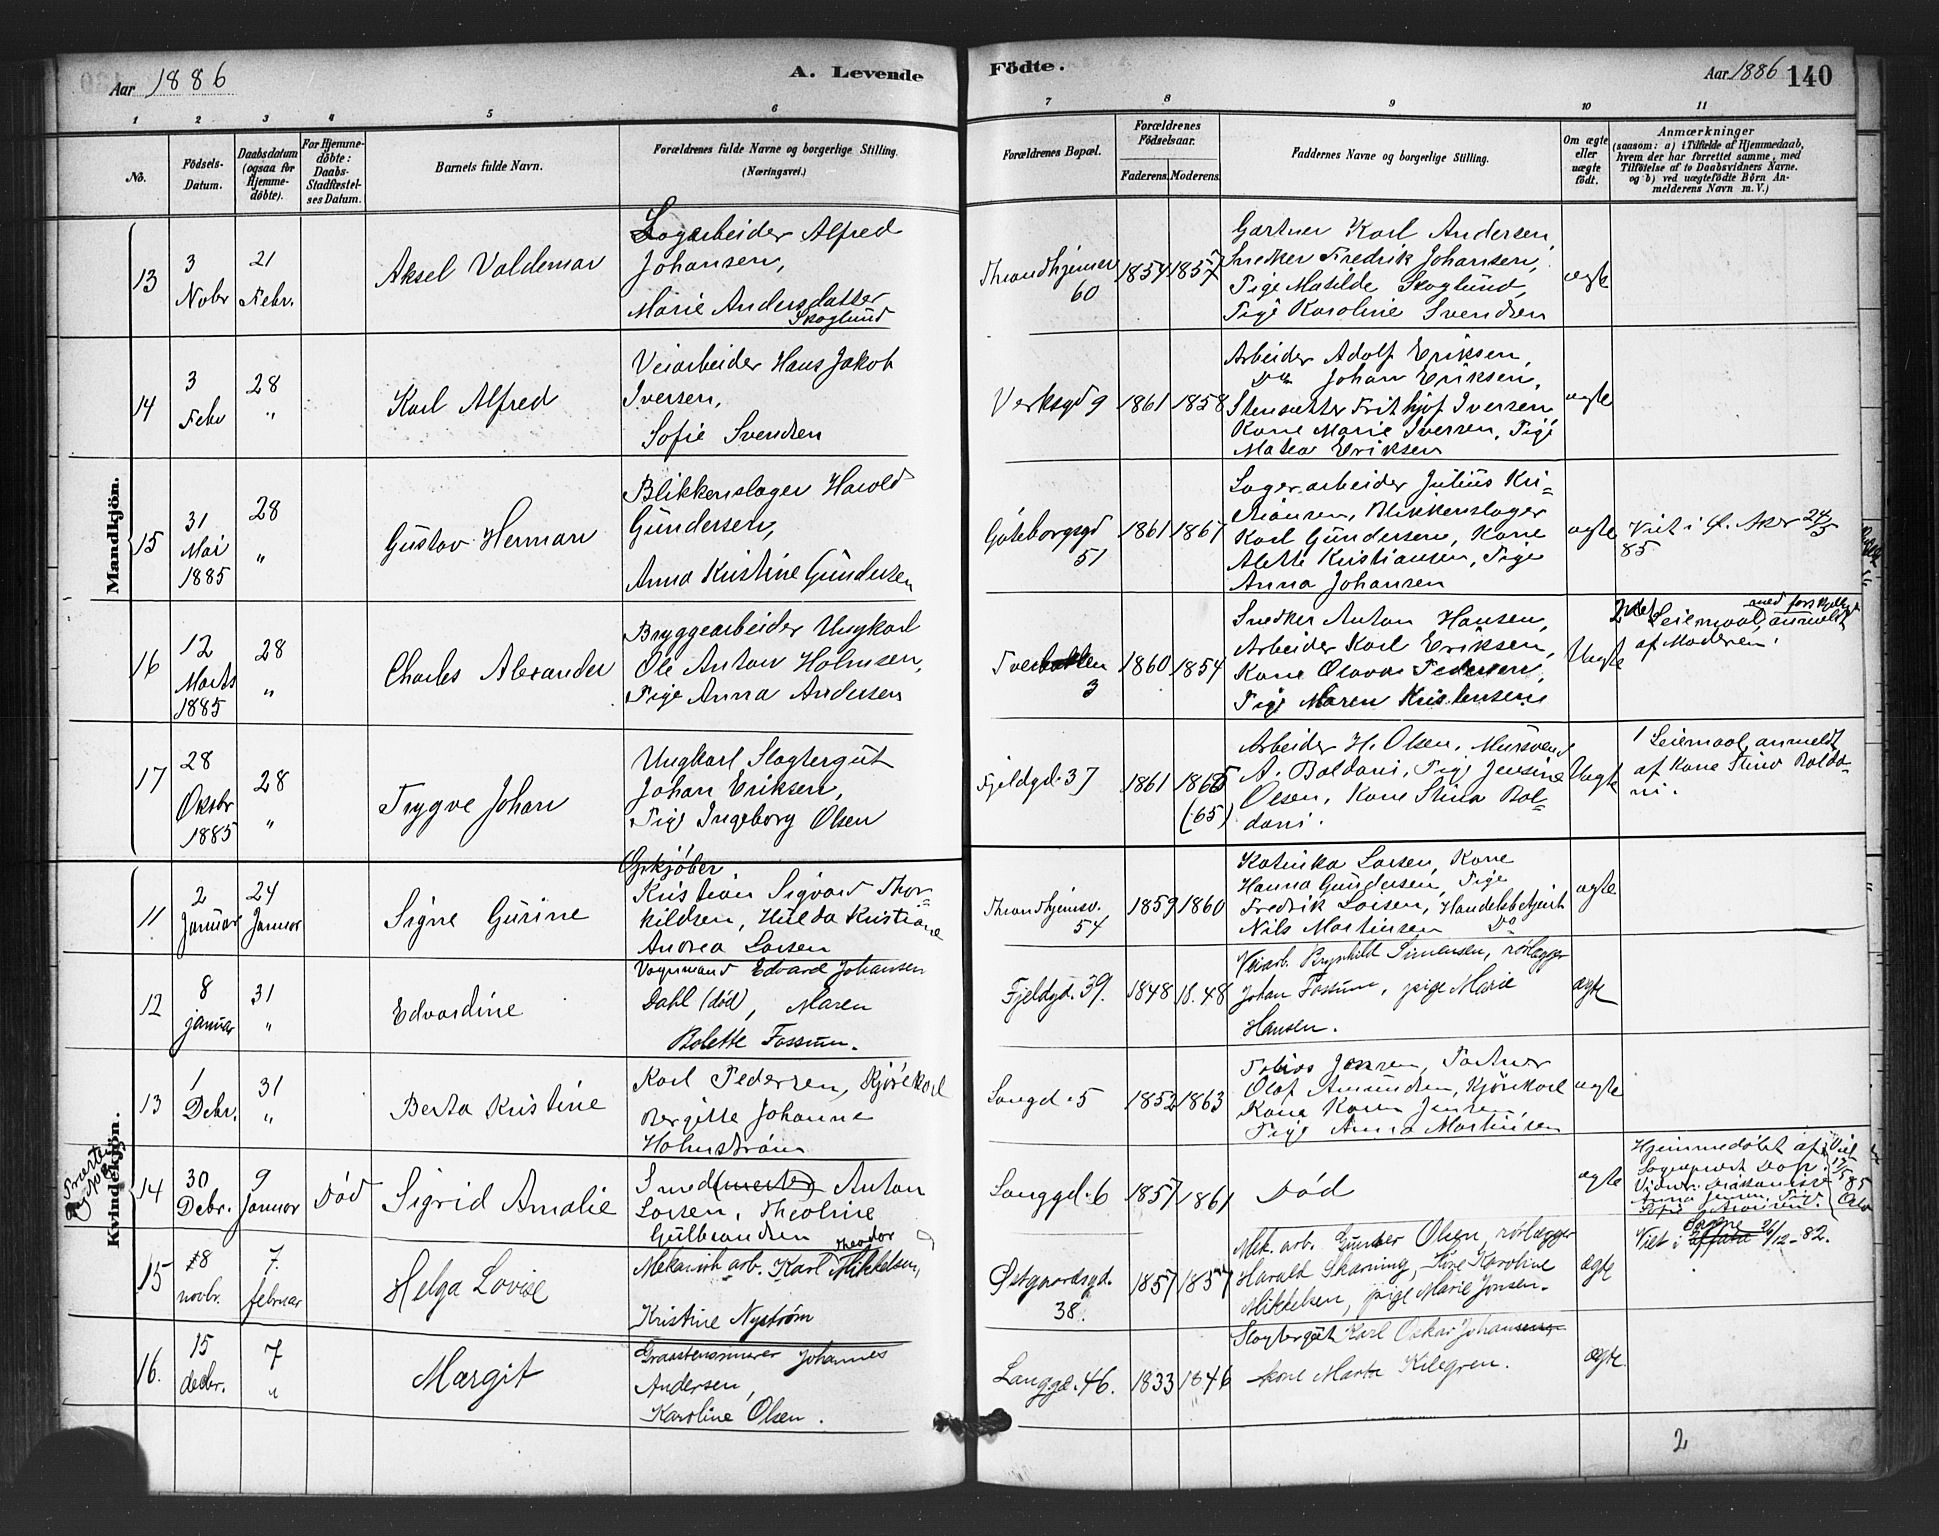 Aar 1886
A. Levende
Födte.
Aar 1886 140
1 2 3 4 5 6 7 8 9 10 11
No.
Födsels-
Datum.
Daabsdatum
(ogsaa for
Hjemme-
døbte).
For Hjemme-
døbte:
Daabs-
Stadfæstel-
ses Datum.
Barnets fulde Navn.
Forældrenes fulde Navne og borgerlige Stilling.
(Næringsvei.)
Forældrenes Bopæl.
Forældrenes
Födselsaar.
Faderens. Moderens.
Faddernes Navne og borgerlige Stilling.
Om ægte
eller
uægte
født.
Anmærkninger
(saasom: a) i Tilfælde af Hjemmedaab,
hvem der har forrettet samme, med
Tilføielse af to Daabsvidners Navne.
og b) ved uægtefødte Börn An-
melderens Navn m. V.)
Mandkjön.
13
3
Nobr
21
Febr.
Aksel Valdemar
Lagarbeider Alfred
Johansen,
Marie Andersdatter
Skoglund
Throndhjemsv
60
1854 1857
Gartner Karl Andersen,
Snedker Fredrik Johansen,
Pige Matilde Skoglund,
Pige Karoline Svendsen
ægte
14
3
Febr
28
"
Karl Alfred
Veiarbeider Hans Jakob
Iversen,
Sofie Svendsen
Verksgd 9
1861 1858
Arbeider Adolf Eriksen,
Do Johan Eriksen,
Stensætter Frithjof Iversen,
Kone Marie Iversen, Pige
Matea Eriksen
ægte
15
31
Mai
1885
28
"
Gustav Herman
Blikkenslager Harald
Gundersen,
Anna Kristine Gundersen
Göteborgsgd
51
1861 1867
Lagerarbeider Julius Kri-
stiansen, Blikkenslager
Karl Gundersen, Kone
Alette Kristiansen, Pige
Anna Johansen
ægte
Viet i Ø. Aker 24/5
85
16
12
Marts
1885
28
"
Charles Alexander
Bryggearbeider Ungkarl
Ole Anton Holmsen,
Pige Anna Andersen
Tverbakken
3
1860 1854
Snedker Anton Hansen,
Arbeider Karl Eriksen,
Kone Olava Pedersen,
Pige Maren Kristensen
Uægte
2det Leiermaal med forskjellige, anmeldt
af Moderen.
17
28
Oktbr
1885
28
"
Trygve Johan
Ungkarl Slagtergut
Johan Eriksen,
Pige Ingeborg Olsen
Fjeldgd. 37
1861 1865
(65)
Arbeider H. Olsen, Mursvend
A. Baldani, Pige Jensine
Olsen, Kone Stina Bal-
dani.
Uægte
1 Leiermaal, anmeldt
af Kone Stina Balda-
ni.
Kvindekjön.
11
2
Januar
24
Januar
Signe Gurine
Opkjøber
Kristian Sigvard Thor-
kildsen, Hulda Kristiane
Andrea Larsen
Throndhjemsv.
54
1859 1860
Katinka Larsen, Kone
Hanna Gundersen, Pige
Fredrik Larsen, Handelsbetjent
Nils Martinsen Do
ægte
12
8
januar
31
"
Edvardine
Vognmand Edvard Johansen
Dahl (død), Maren
Bolette Fossum.
Fjeldgd. 39.
1848 18.48
Veiarb. Brynhild Simensen, rørlægger
Johan Fossum, pige Marie
Hansen.
ægte
13
1
Debr.
31
"
Berta Kristine
Karl Pedersen, Kjørekarl
Bergitte Johanne
Holmstrøm
Langd. 5
1852 1863
Tobias Jensen, Portner
Olaf Amundsen, Kjørekarl
Kone Karen Jensen,
Pige Anna Martinsen
ægte
14
30
Debr.
9
Januar
Død
Sigrid Amalie
Smed(mester) Anton
Larsen, Theoline
Gulbrandsen
Langgd. 6
1857 1861
Død
ægte
Hjemmedøbt af
Viet
17/5
85
Anna Jensen, Pige
15
18
novbr.
7.
februar
Helga Lovise
Mekanisk arb. Karl Theodor Mikkelsen,
Kristine Nystrøm
Østgaardsgd.
38.
1857 1857
Mek. arb. Gunder Olsen, rørlægger
Harald Skarning, Kone Karoline
Mikkelsen, pige Marie Jonsen.
ægte
Viet i 26/12-82.
16.
15
decbr.
7
"
Margit
Graastensmurer Johannes
Andersen,
Karoline Olsen.
Langgd. 46.
1833 1846
Slagtergut Karl Oskar Johansen,
kone Marta Kilegren.
ægte.
2